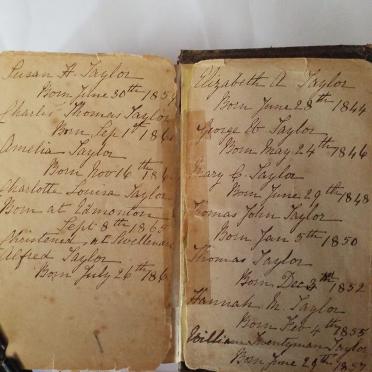 Susan H. Taylor
Born June 30th 1859
Charles Thomas Taylor
Born Sep 1st 186
Amelia Taylor
Born Nov 16th 186
Charlotte Louisa Taylor
Born at Edmonton
Sept 8th 1865
Christened at
Alfred Taylor
Born July 26th 186
Elizabeth A Taylor
Born June 28th 1844
George W Taylor
Born May 24th 1846
Mary C. Taylor
Born June 29th 1848
Thomas John Taylor
Born Jan 5th 1850
Thomas Taylor
Born Dec 1852
Hannah M Taylor
Born Feb 4th 1855
William Taylor
Born June 29th 1857